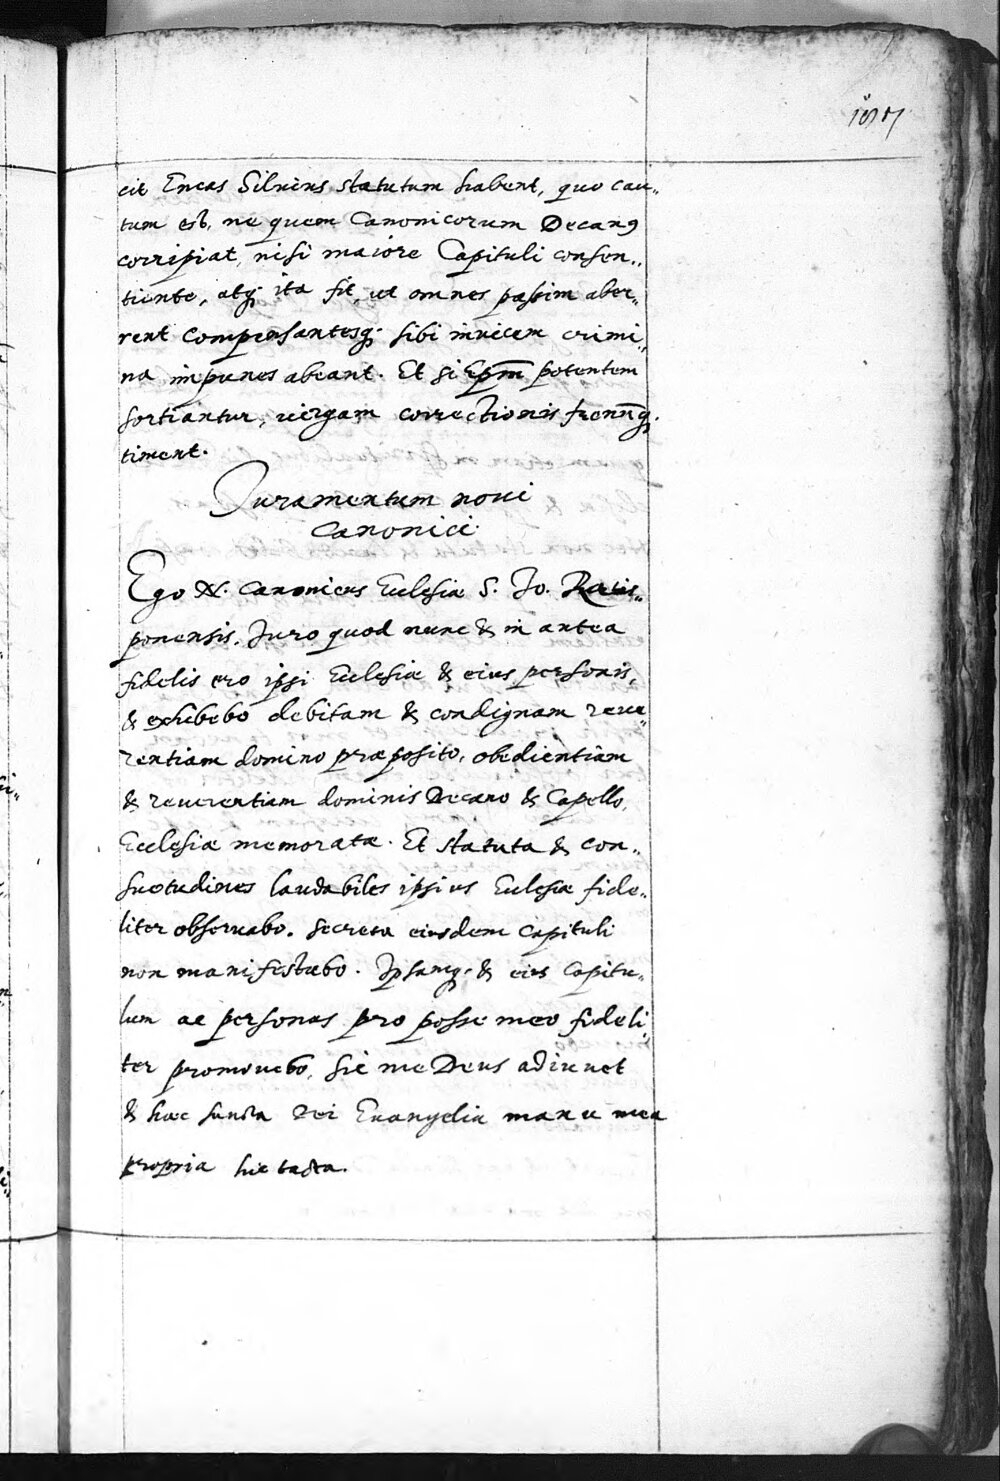 cit Eneas Siluius statutum habent, quo cau„
tum est, ne quem Canonicorum Decanꝯ
corripiat, nisi maiore Capituli consen„
tiente, atq; ita fit, ut omnes passim aber„
rent compensantesq; sibi inuicem crimi„
na impunes abeant. Et si Ep̄m potentem
sortiantur, uirgam correctionis frenūq;
timent.
Juramentum noui
Canonici.
Ego N. Canonicus Ecclesiæ S. Jo. Ratis„
ponensis. Juro quod nunc & in antea
fidelis ero ipsi Ecclesiæ & eius personis,
& exhibebo debitam & condignam reue„
rentiam domino præposito, obedientiam
& reuerentiam dominis Decano & Capello,
Ecclesiæ memoratæ. Et statuta & con„
suetudines laudabiles ipsius Ecclesiæ fide„
liter obseruabo. Secreta eiusdem Capituli
non manifestabo. Ipsamq; & eius Capitu„
lum ac personas pro posse meo fideli„
ter promouebo, sic me Deus adiuuet
& hæc sancta Dei Euangelia manu mea
propria hic tacta.